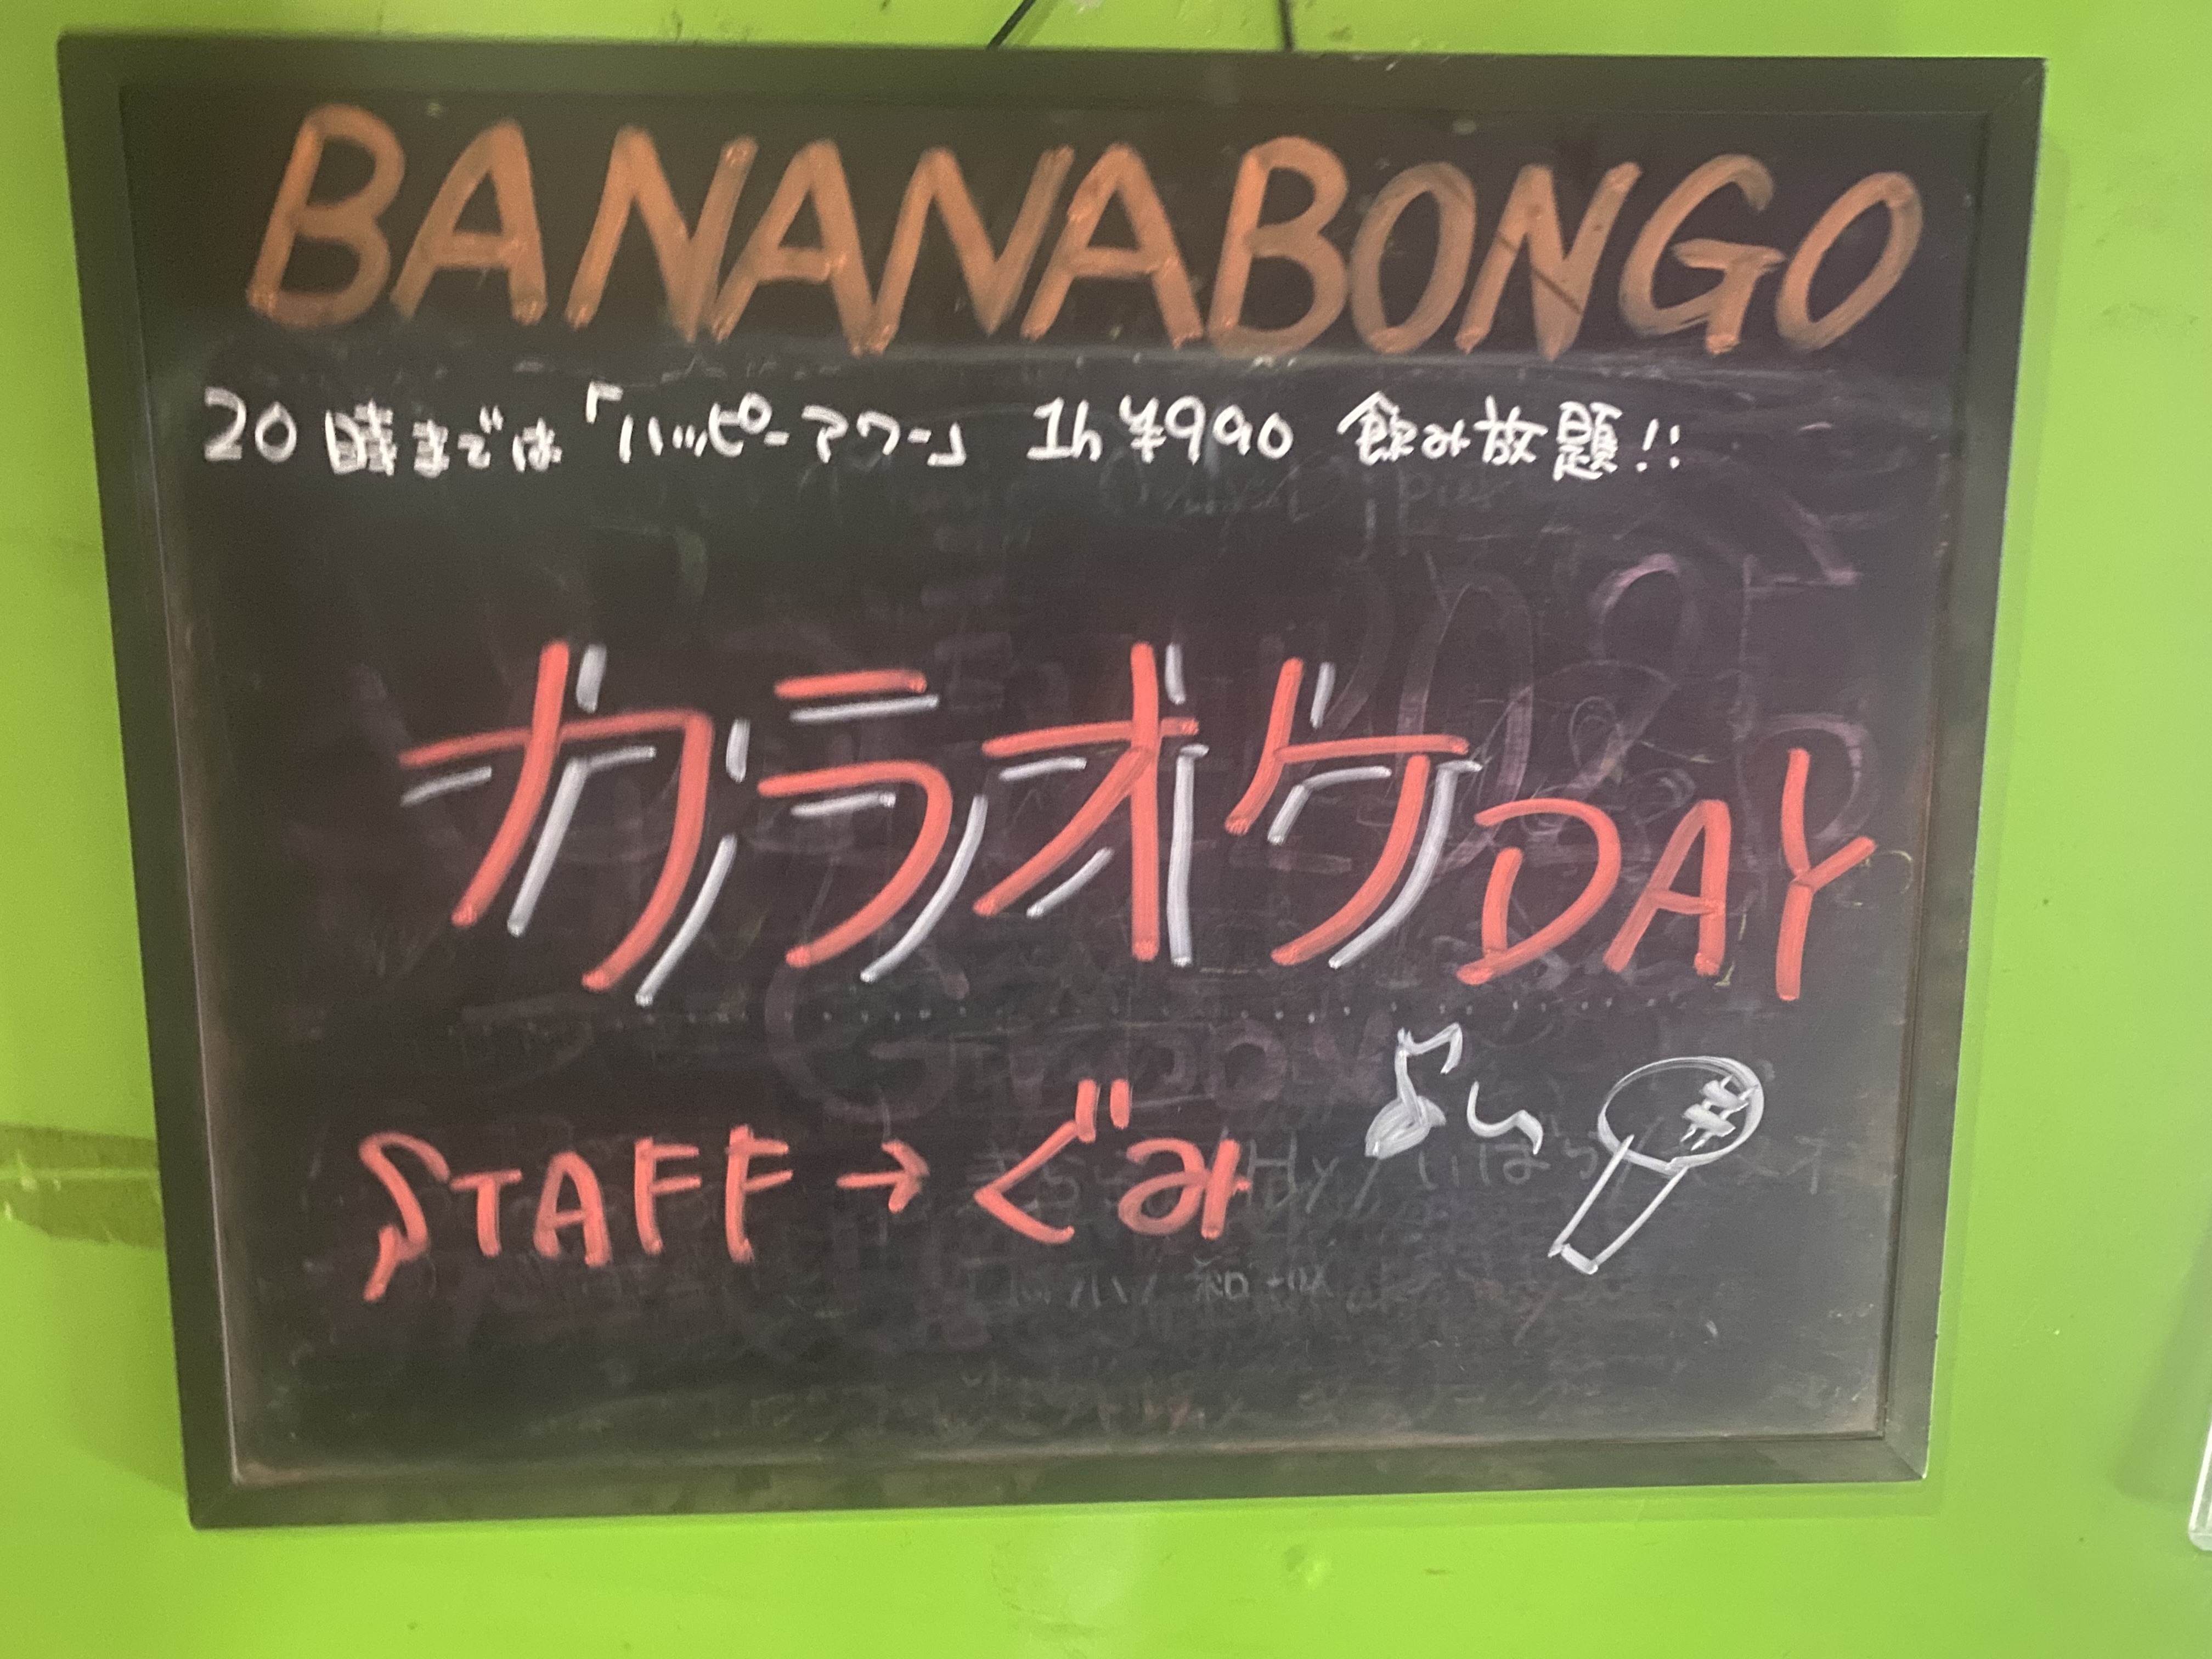 BANANABONGO
20時までは「ハッピーアワー」 1h ¥990 飲み放題!!
カラオケDAY
STAFF→ぐみ